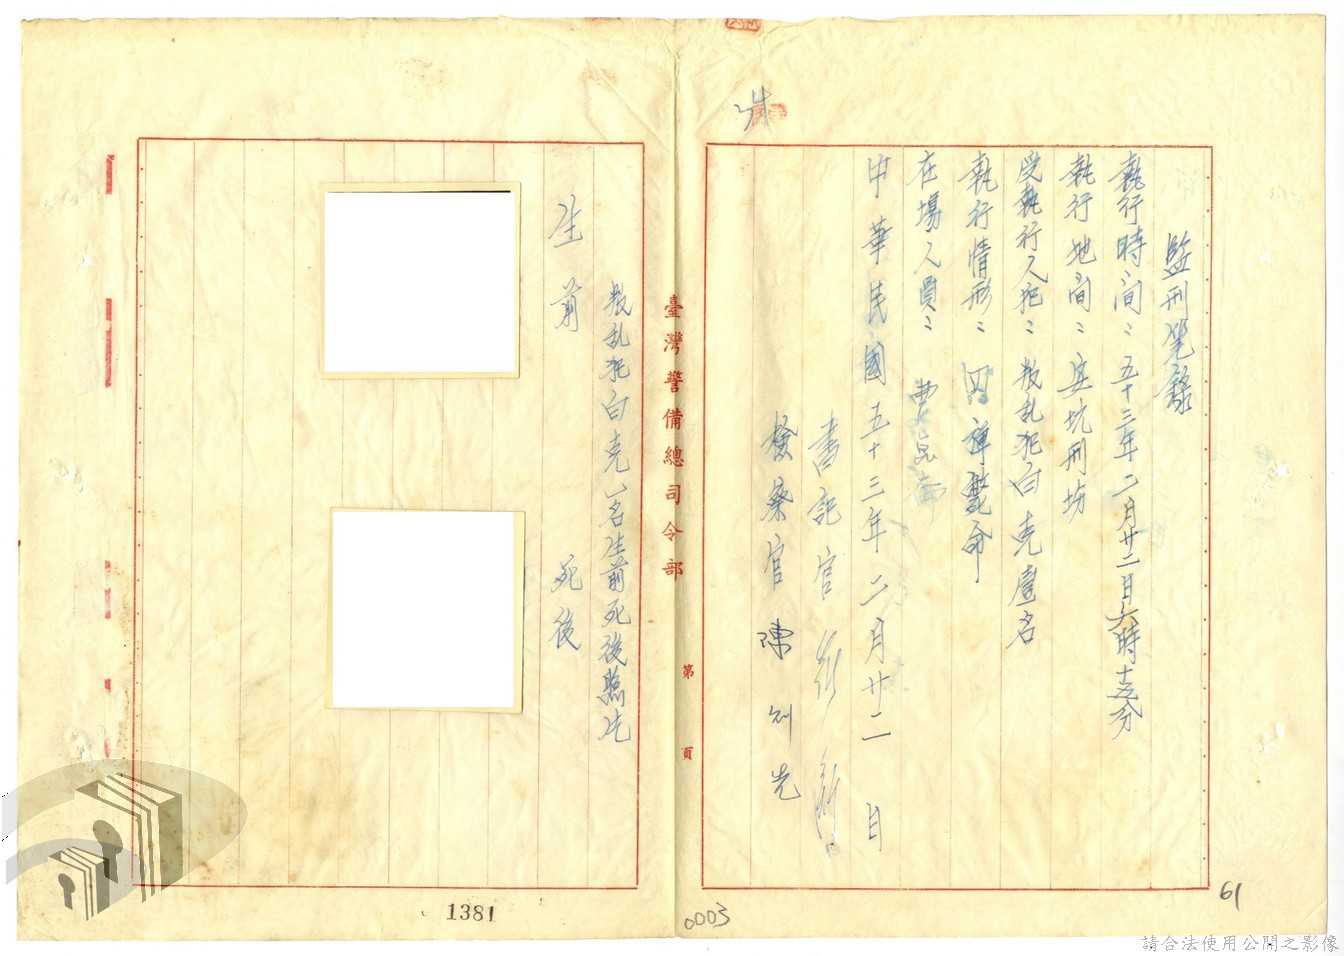 監刑笔錄
執行時间：五十三年二月廿二日六時十五分
執行地间：安坑刑场
受執行人犯：叛乱犯白克壹名
執行情形：四弹毙命
在場人員：曹昆
中華民國五十三年二月廿二日
書記官
檢察官陳
臺灣警備總司令部
第 頁
叛乱犯白克一名生前死後照片
生前 死後
1381
0003
61
請合法使用公開之影像